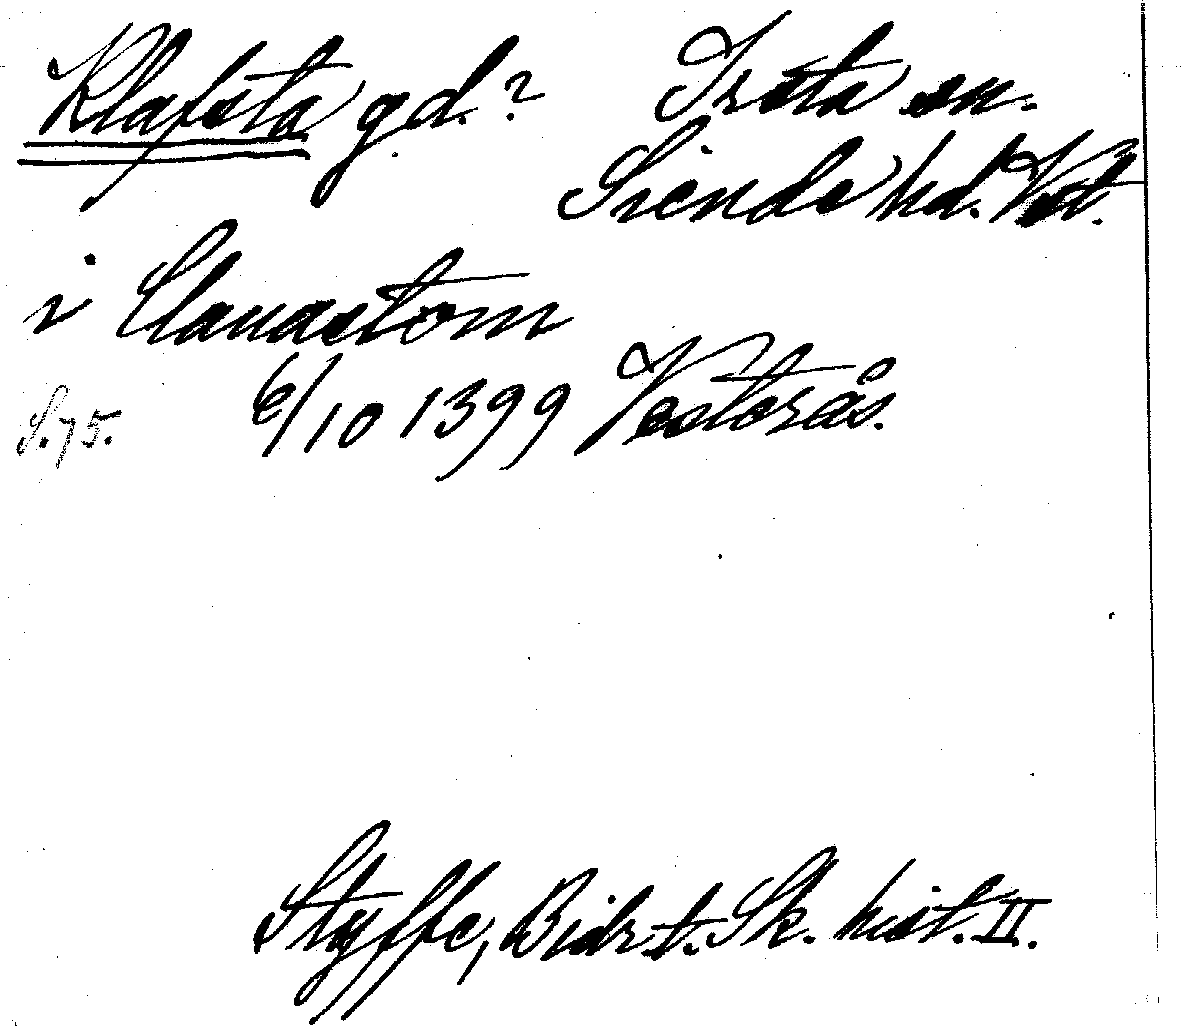 Klafsta gd.? Irsta sn.
Siende hd. Vstl.
i Clauastom
S. 75. 6/10 1399 Vesterås.
Styffe, Bidr. t. Sk. hist. II.